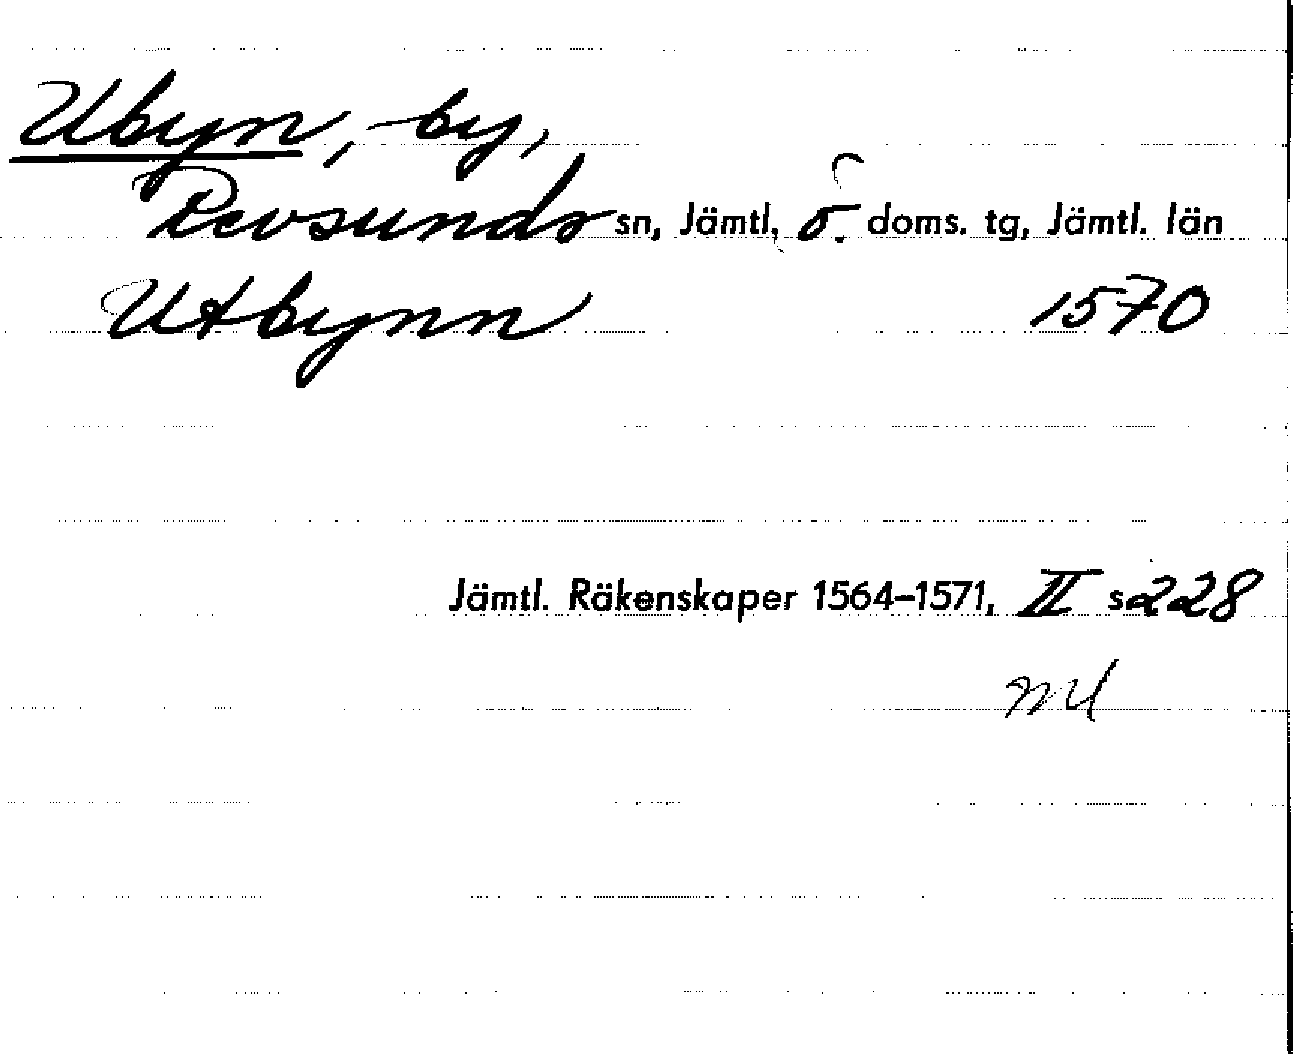 Ubyn, by,
Revsunds sn, Jämtl, ö. doms. tg, Jämtl. län
Utbynn 1570
Jämtl. Räkenskaper 1564–1571, II s 228